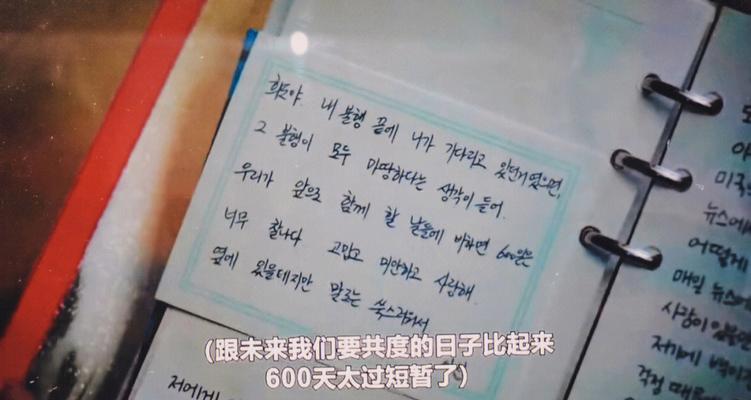 희도야, 내 불행 끝에 너가 기다리고 있던거였으면,
그 불행이 모두 마땅하다는 생각이 들어.
우리가 앞으로 함께 할 날들에 비하면 600일은
너무 찰나다 고맙고 미안하고 사랑해.
옆에 있을테지만 말로는 쑥스러워서
저에게
미국
뉴스에
어떻게
매일 뉴스
저기에
걱정
(跟未来我们要共度的日子比起来
600天太过短暂了)